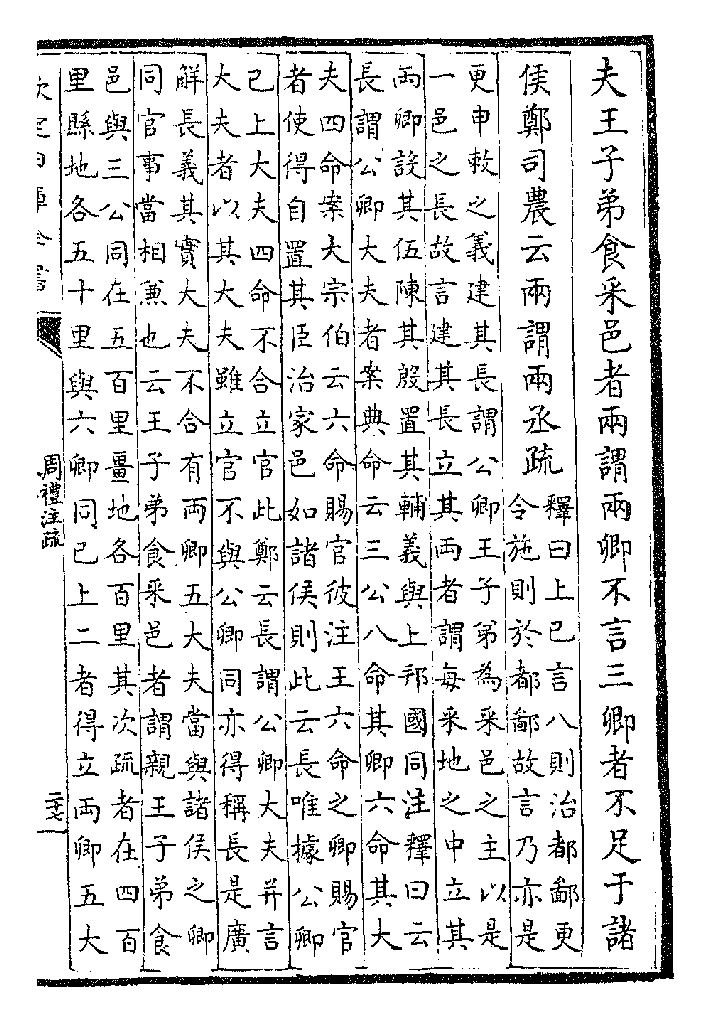 夫王子弟食采邑者兩謂兩卿不言三卿者不足于諸
侯鄭司農云兩謂兩丞疏
釋曰上已言八則治都鄙更
令施則於都鄙故言乃亦是
更申敕之義建其長謂公卿王子弟為采邑之主以是
一邑之長故言建其長立其兩者謂每采地之中立其
兩卿設其伍陳其殷置其輔義與上邦國同注釋曰云
長謂公卿大夫者案典命云三公八命其卿六命其大
夫四命案大宗伯云六命賜官彼注王六命之卿賜官
者使得自置其臣治家邑如諸侯則此云長唯據公卿
已上大夫四命不合立官此鄭云長謂公卿大夫并言
大夫者以其大夫雖立官不與公卿同亦得稱長是廣
解長義其實大夫不合有兩卿五大夫當與諸侯之卿
同官事當相兼也云王子弟食采邑者謂親王子弟食
邑與三公同在五百里畺地各百里其次疏者在四百
里縣地各五十里與六卿同已上二者得立兩卿五大
周禮注疏